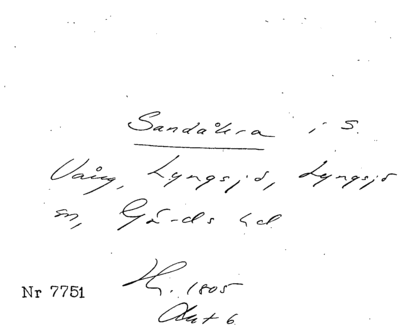 Sandåkra i S.
Vång, Lyngsjö, Lyngsjö
sn, Gärds hd
H. 1805
Akt 6
Nr 7751